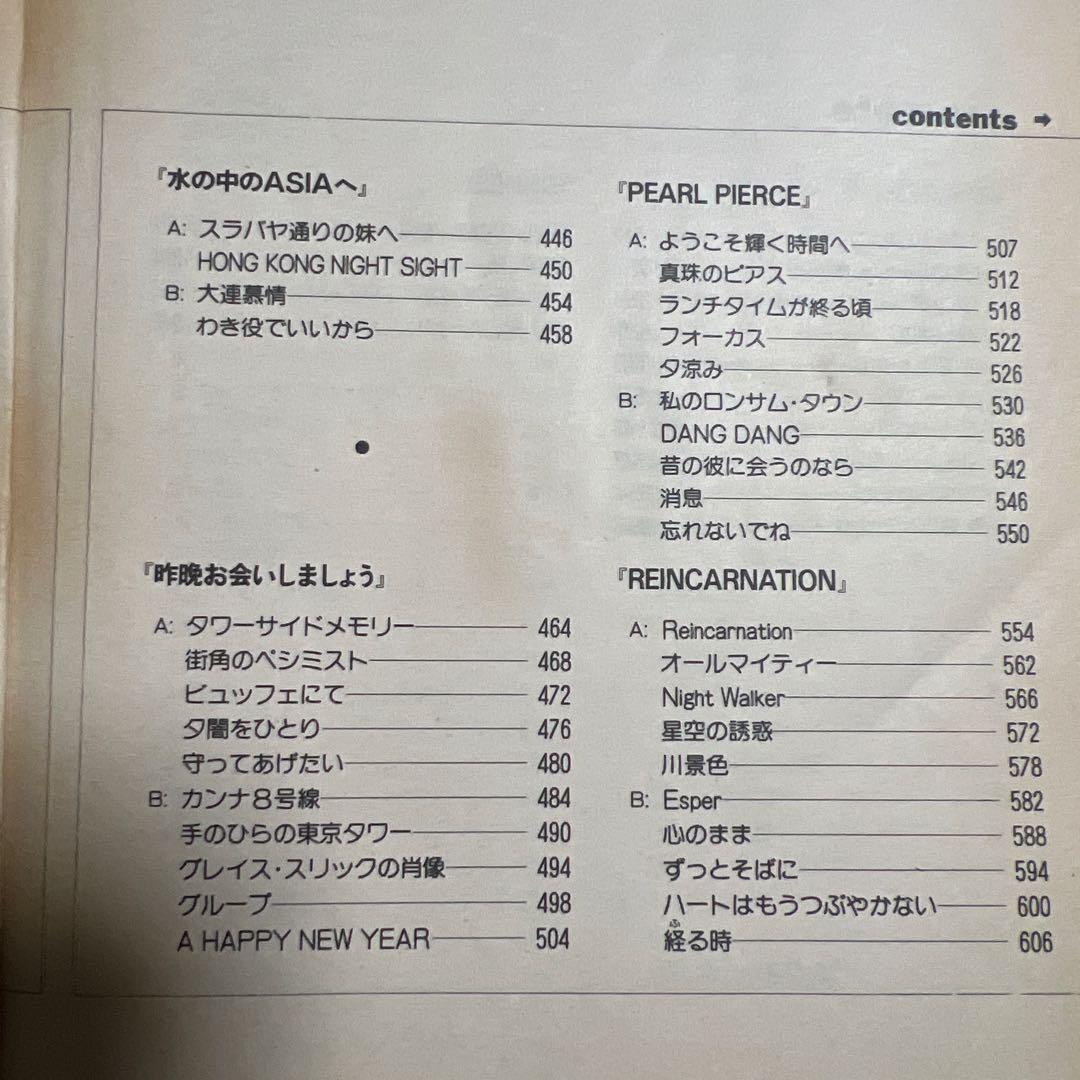 contents →
『水の中のASIAへ』
A: スラバヤ通りの妹へ 446
HONG KONG NIGHT SIGHT 450
B: 大連慕情 454
わき役でいいから 458
『昨晩お会いしましょう』
A: タワーサイドメモリー 464
街角のペシミスト 468
ビュッフェにて 472
夕闇をひとり 476
守ってあげたい 480
B: カンナ8号線 484
手のひらの東京タワー 490
グレイス・スリックの肖像 494
グループ 498
A HAPPY NEW YEAR 504
『PEARL PIERCE』
A: ようこそ輝く時間へ 507
真珠のピアス 512
ランチタイムが終る頃 518
フォーカス 522
夕涼み 526
B: 私のロンサム・タウン 530
DANG DANG 536
昔の彼に会うのなら 542
消息 546
忘れないでね 550
『REINCARNATION』
A: Reincarnation 554
オールマイティー 562
Night Walker 566
星空の誘惑 572
川景色 578
B: Esper 582
心のまま 588
ずっとそばに 594
ハートはもうつぶやかない 600
ふ
経る時 606